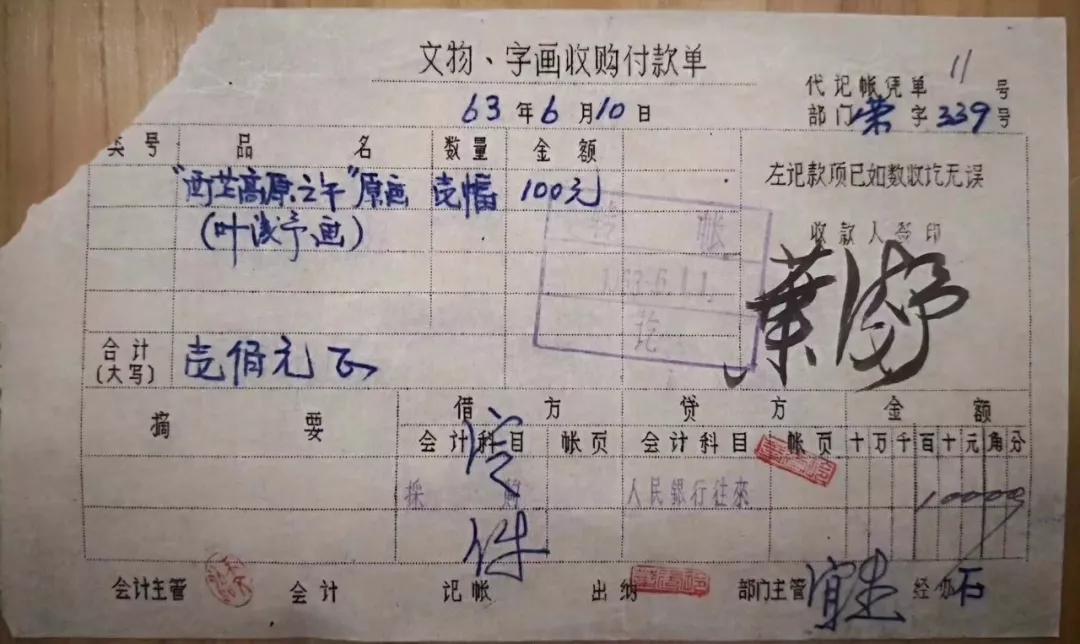 文物、字画收购付款单
63年6月10日
代记帐凭单 11 号
部门 荣 字 339 号
类号 品名 数量 金额
左记款项已如数收讫无误
"西芷高原之午"原画 壹幅 100元
(叶浅予画)
收款人签印
转帐
1963.6.11.
讫
葉浅予
合计
(大写) 壹佰元正
摘要 借方 贷方 金额
会计科目 帐页 会计科目 帐页 十万千百十元角分
採购 人民銀行往來 10000
会计主管 会计 记帐 出纳 部门主管 宜生 经办 石